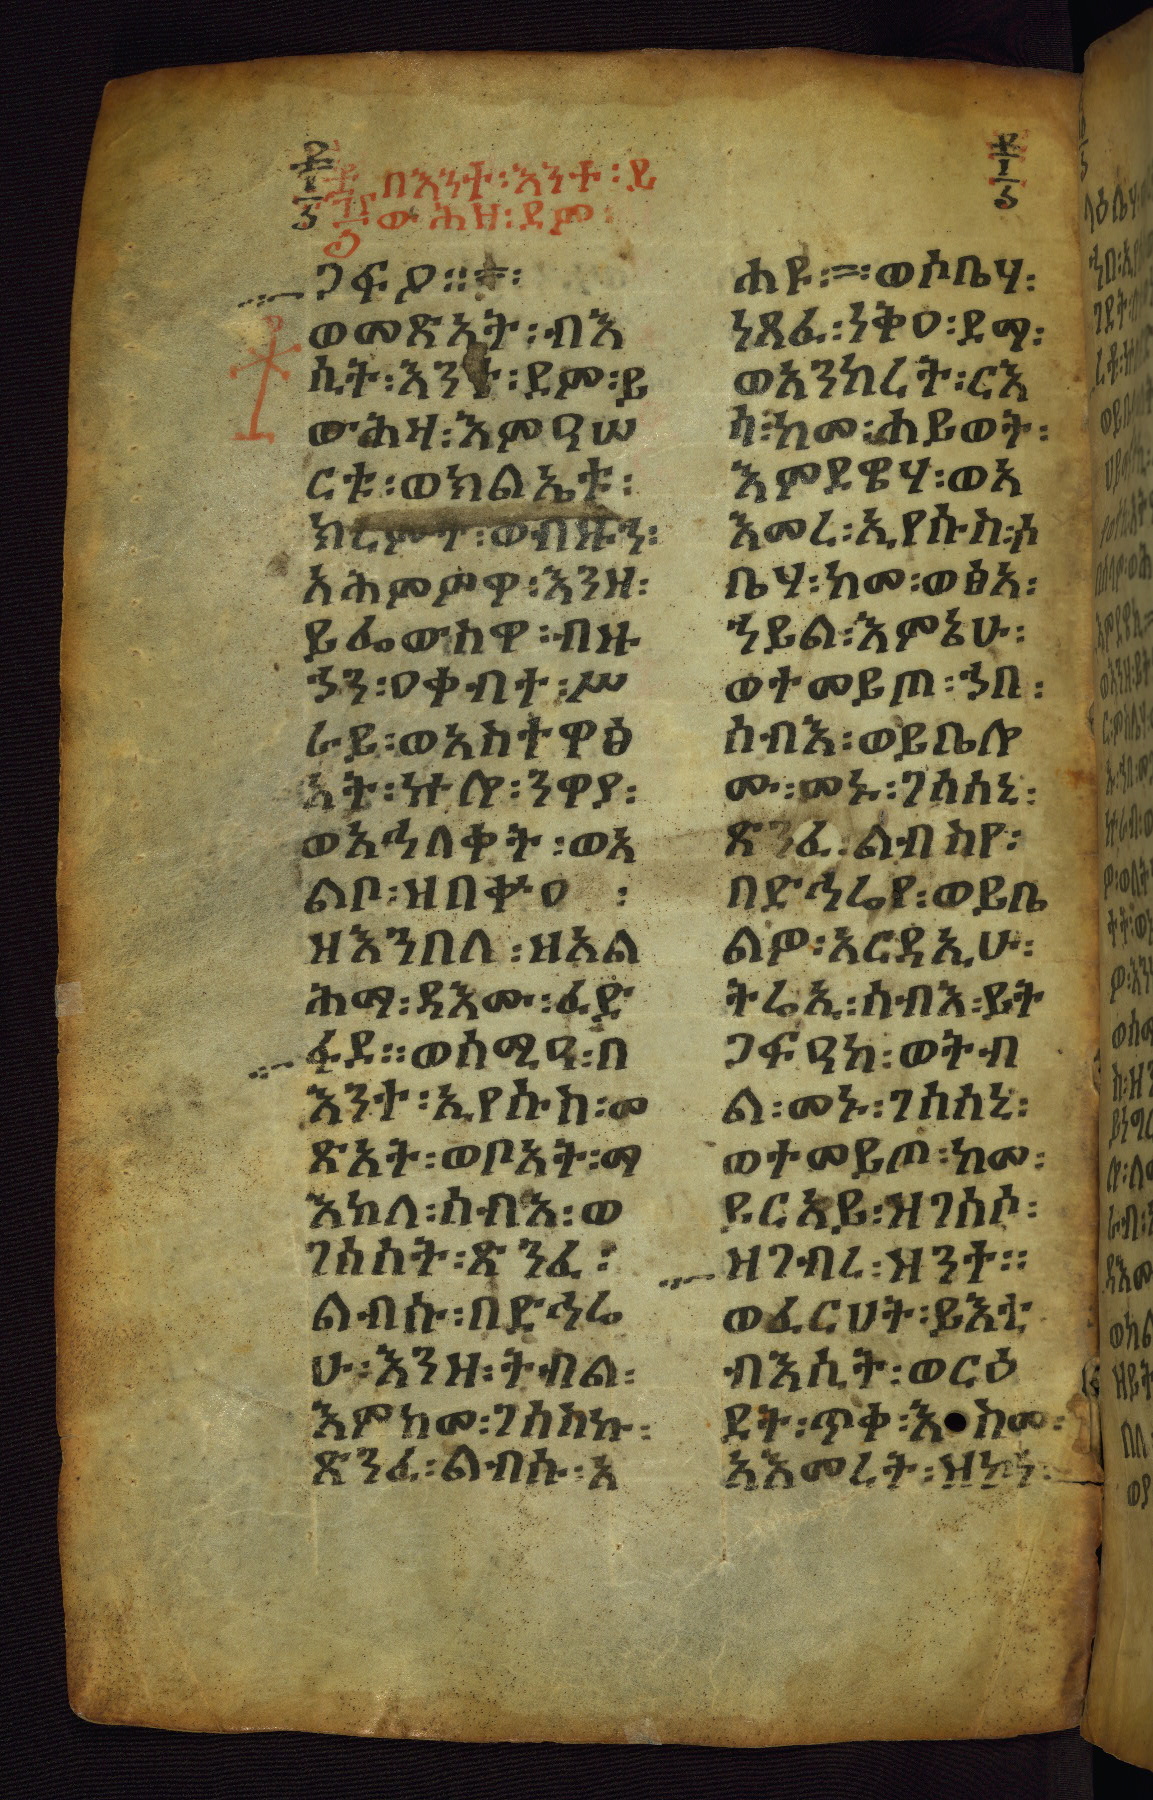 በእንተ፡እንተ፡ይ
ውሕዝ፡ደም፡
ጋፍዖ።
ወመጽአት፡ብእ
ሲት፡እንተ፡ደም፡ይ
ውሕዛ፡እምዓሠ
ርቱ፡ወክልኤቱ፡
ክረምት፡ወብዙን፡
አሕመምዋ፡እንዘ፡
ይፌውስዋ፡ብዙ
ኃን፡ዐቀብተ፡ሥ
ራይ፡ወአስተዋፅ
አት፡ኵሎ፡ንዋያ፡
ወአኅለቀት፡ወአ
ልቦ፡ዘበቍዐ፡
ዘእንበለ፡ዘአል
ሕማ፡ዳእሙ፡ፈድ
ፋደ።ወሰሚዓ፡በ
እንተ፡ኢየሱስ፡መ
ጽአት፡ወቦአት፡ማ
እከለ፡ሰብእ፡ወ
ገሰሰት፡ጽንፈ፡
ልብሱ፡በድኅሬ
ሁ፡እንዘ፡ትብል፡
እምከመ፡ገሰስኩ፡
ጽንፈ፡ልብሱ፡አ
ሐዩ፡ወሶቤሃ፡
ነጸፈ፡ነቅዐ፡ደማ፡
ወአንከረት፡ርእ
ሳ፡ከመ፡ሐይወት፡
እምደዌሃ፡ወአ
እመረ፡ኢየሱስ፡ሶ
ቤሃ፡ከመ፡ወፅአ፡
ኀይል፡እምኔሁ፡
ወተመይጠ፡ኀበ፡
ሰብእ፡ወይቤሎ
ሙ፡መኑ፡ገሰሰኒ፡
ጽንፈ፡ልብስየ፡
በድኅሬየ፡ወይቤ
ልዎ፡አርዳኢሁ፡
ትሬኢ፡ሰብእ፡ይት
ጋፍዓከ፡ወትብ
ል፡መኑ፡ገሰሰኒ፡
ወተመይጠ፡ከመ፡
ይርአይ፡ዝገሰሶ፡
ዝገብረ፡ዝንተ።
ወፈርሀት፡ይእቲ
ብእሲት፡ወርዕ
ደት፡ጥቀ፡እስመ፡
አእመረት፡ዝኮነ፡